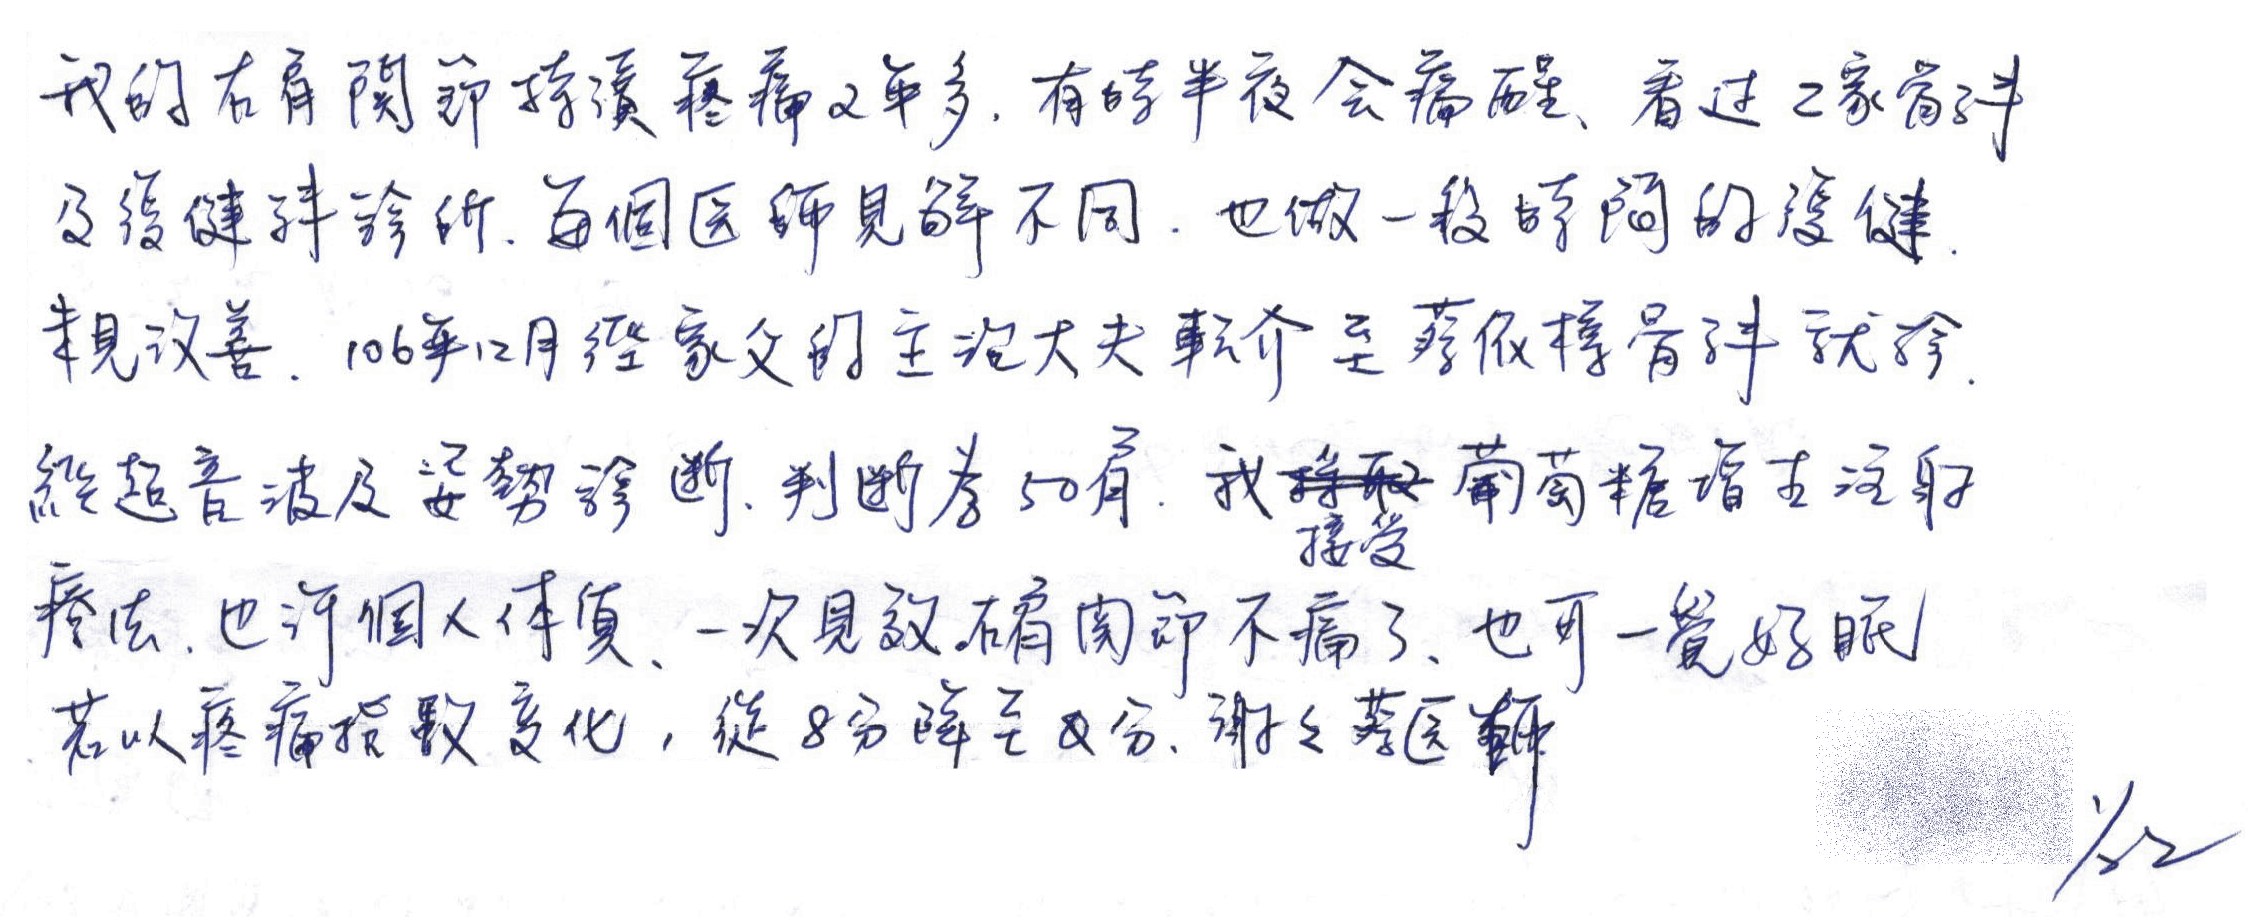 我的右肩関節持續疼痛2年多.有時半夜会痛醒、看过2家骨科
及復健科診所.每個医師見解不同.也做一段時間的復健.
未見改善.106年12月經家父的主治大夫転介至蔡依樺骨科就診.
經超音波及姿勢診断.判断為50肩.我葡萄糖增生注射
接受
療法.也許個人体質、一次見效.右肩関節不痛了、也可一覺好眠
若以疼痛指數变化,從8分降至2分、謝々蔡医師
1/22